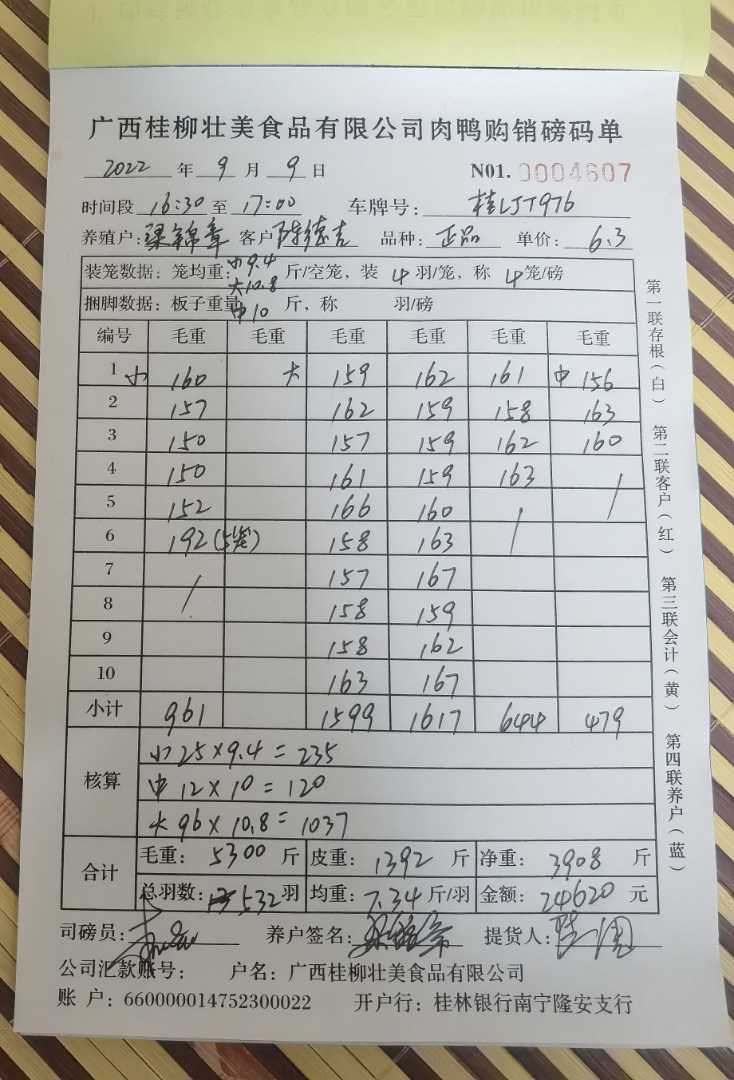 广西桂柳壮美食品有限公司肉鸭购销磅码单
2022 年 9 月 9 日 N01. 0004607
时间段 16:30 至 17:00 车牌号: 桂LJT976
养殖户: 梁锦章 客户 陈德吉 品种: 正品 单价: 6.3
装笼数据: 笼均重: 小9.4 斤/空笼, 装 4 羽/笼, 称 4 笼/磅
大10.8
捆脚数据: 板子重量 中10 斤, 称 羽/磅
编号 毛重 毛重 毛重 毛重 毛重 毛重
1 小 160 大 159 162 161 中 156
2 157 162 159 158 163
3 150 157 159 162 160
4 150 161 159 163 /
5 152 166 160 /
6 192 (5笼) 158 163
7 / 157 167
8 158 159
9 158 162
10 163 167
小计 961 1599 1617 644 479
核算 小 25×9.4=235
中 12×10=120
大 96×10.8=1037
合计 毛重: 5300 斤 皮重: 1392 斤 净重: 3908 斤
总羽数: 532 羽 均重: 7.34 斤/羽 金额: 24620 元
司磅员: 养户签名: 提货人:
公司汇款账号: 户名: 广西桂柳壮美食品有限公司
账 户: 660000014752300022 开户行: 桂林银行南宁隆安支行
第一联存根(白) 第二联客户(红) 第三联会计(黄) 第四联养户(蓝)